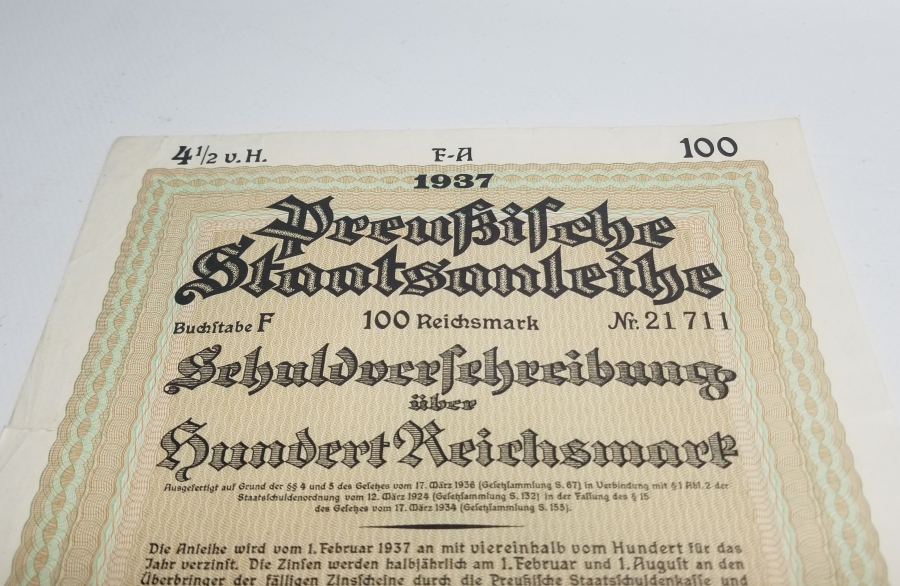 4 1/2 v. H. F-A 100
1937
Preußiſche
Staatsanleihe
Buchſtabe F 100 Reichsmark Nr. 21 711
Schuldverſchreibung
über
Hundert Reichsmark
Ausgefertigt auf Grund der §§ 4 und 5 des Geſetzes vom 17. März 1936 (Geſetzſammlung S. 67) in Verbindung mit § 1 Abſ. 2 der
Staatsſchuldenordnung vom 12. März 1924 (Geſetzſammlung S. 132) in der Faſſung des § 15
des Geſetzes vom 17. März 1934 (Geſetzſammlung S. 155).
Die Anleihe wird vom 1. Februar 1937 an mit viereinhalb vom Hundert für das
Jahr verzinſt. Die Zinſen werden halbjährlich am 1. Februar und 1. Auguſt an den
Überbringer der fälligen Zinsſcheine durch die Preußiſche Staatsſchuldenkaſſe und